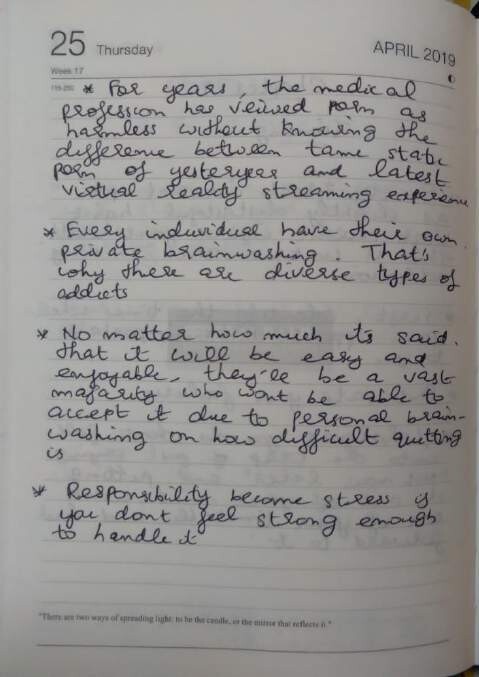 25 Thursday
APRIL 2019
Week 17
115-250
* For years, the medical
profession has veiwed porn as
harmless without knowing the
difference between tame static
porn of yesteryear and latest
virtual reality streaming experience
* Every individual have their own
private brainwashing. That's
why there are diverse types of
addicts
* No matter how much its said.
that it will be easy and
enjoyable, they'le be a vast
majarity who wont be able to
accept it due to personal brain-
washing on how difficult quitting
is
* Responsibility become stress if
you dont feel strong enough
to handle it
"There are two ways of spreading light: to be the candle, or the mirror that reflects it."